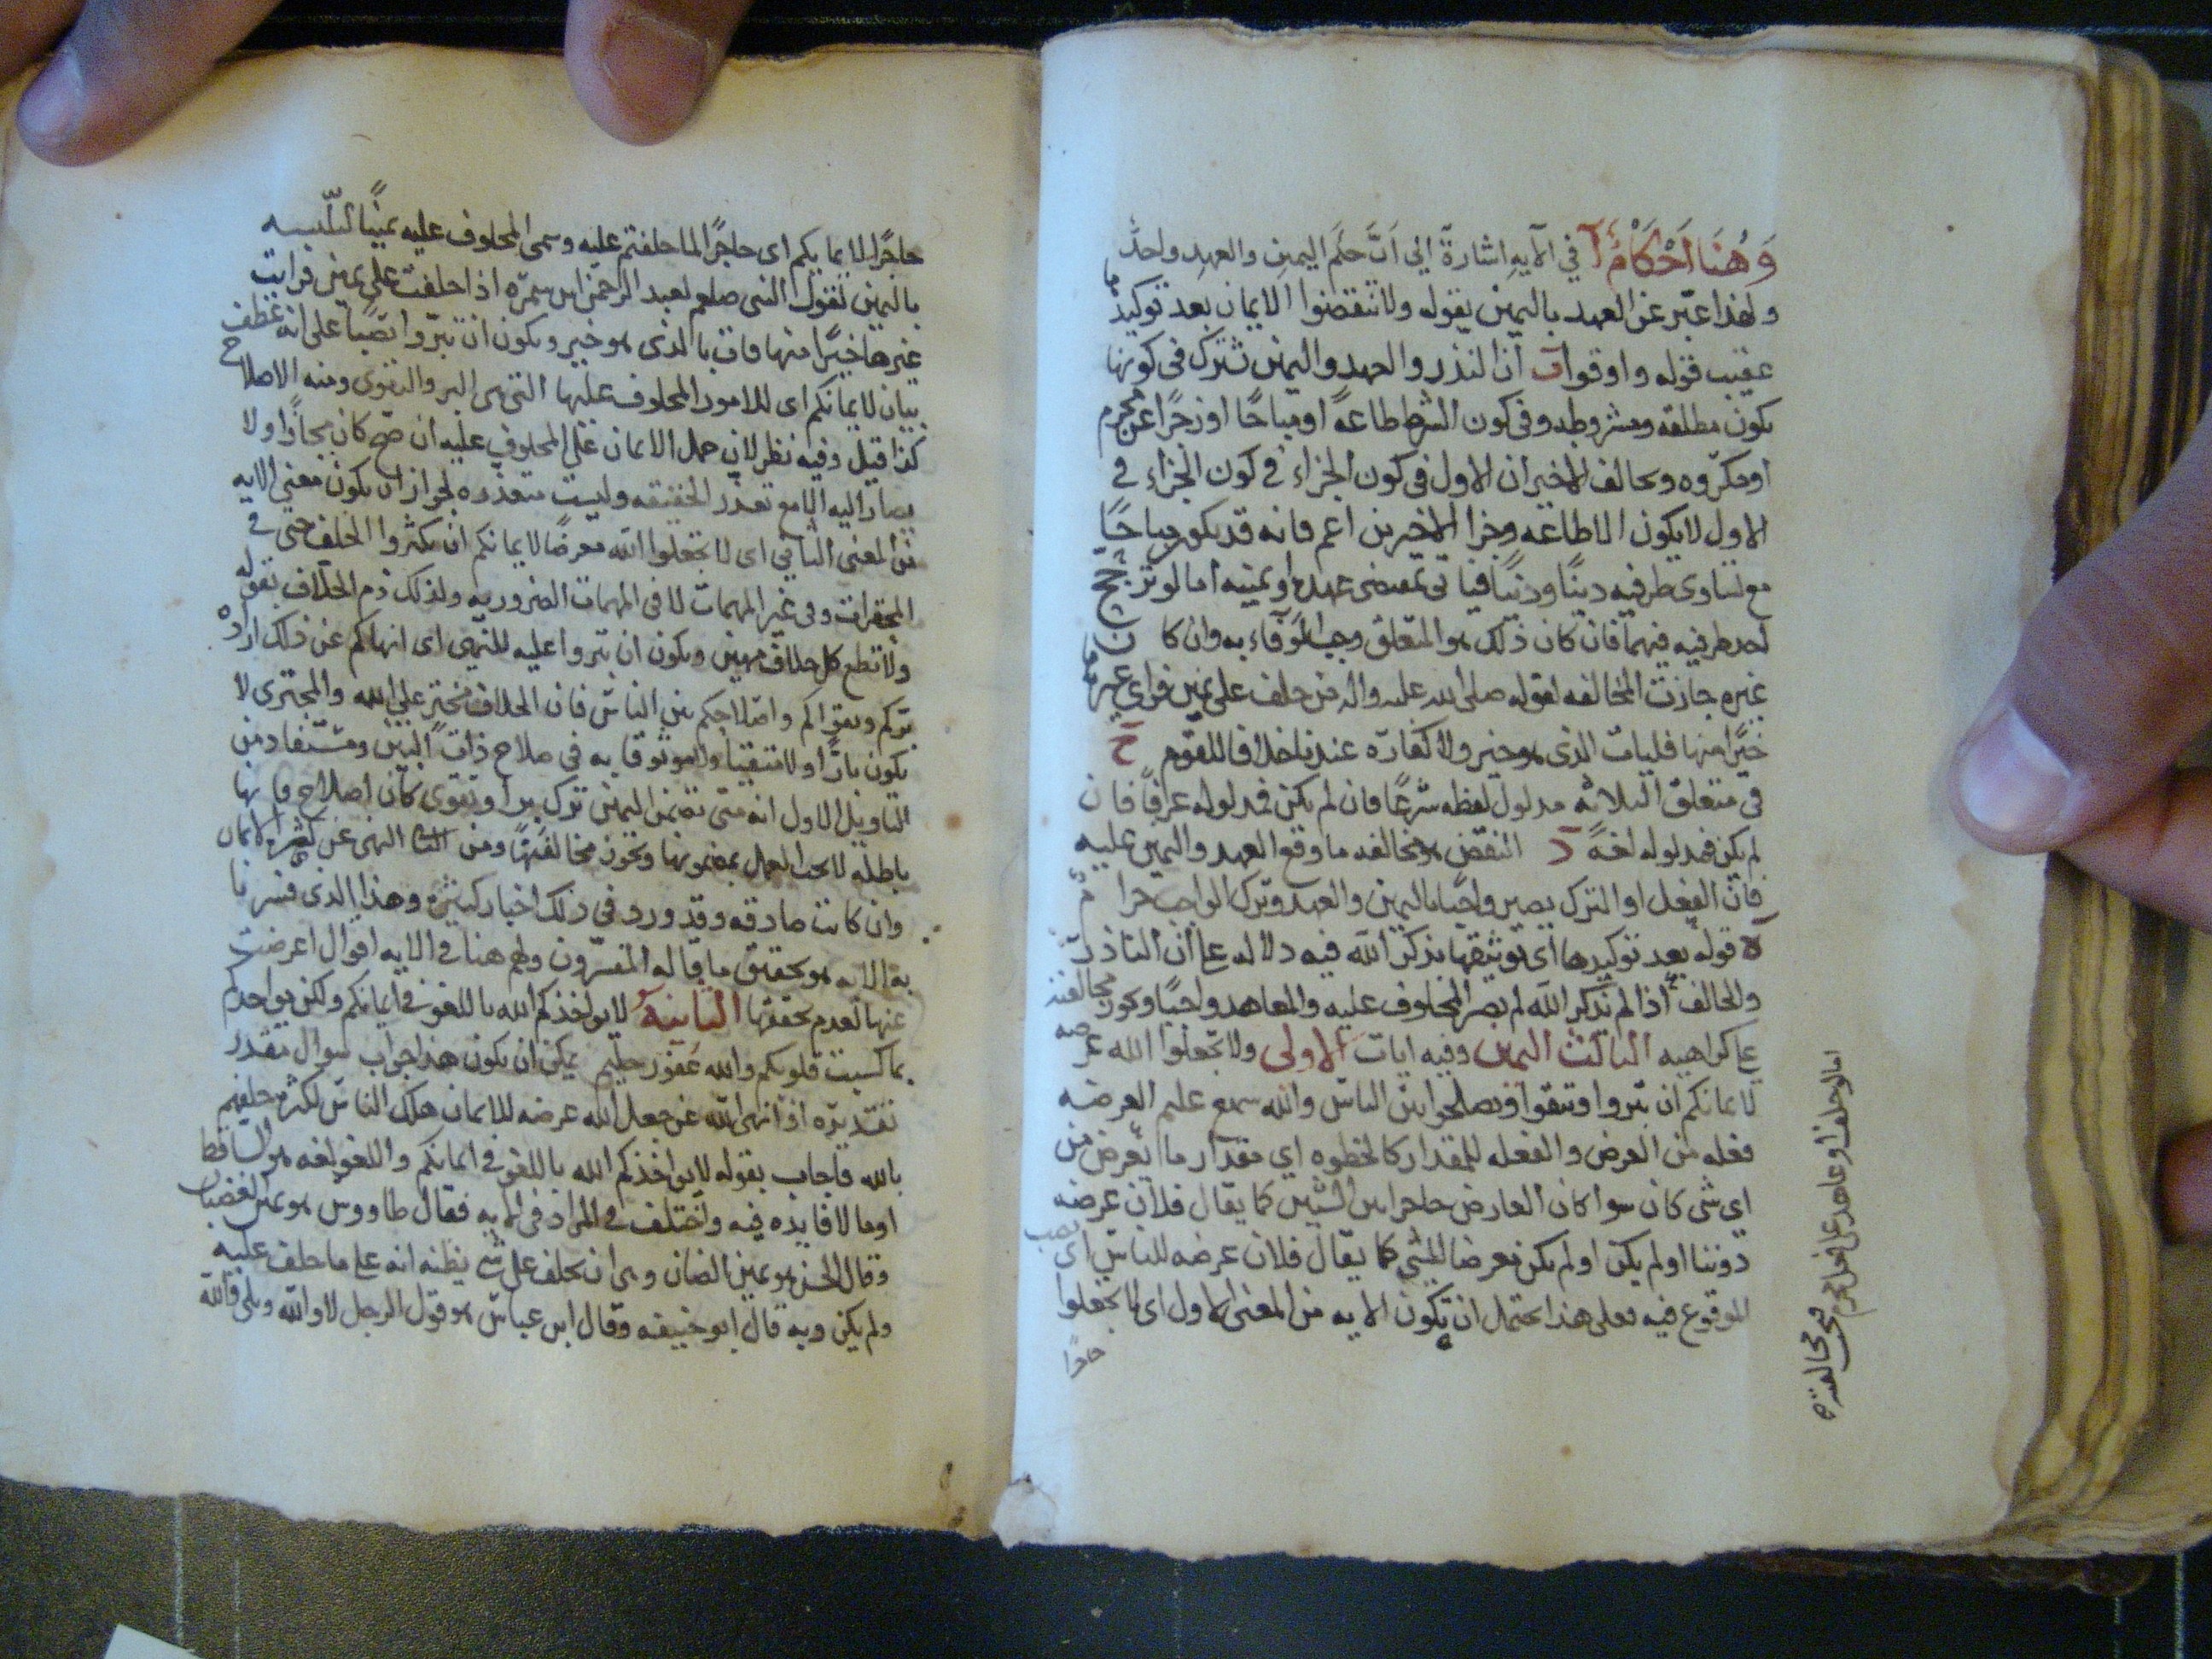 وَهُنَا اَحْكَامٌ آ في الآيه اشارة الى اَنَّ حكم اليمين والعهد واحد
ولهذا عبّر عن العهد باليمين بقوله ولا تنقضوا الايمان بعد توكيدها
عقيب قوله واوفوا ب ان النذر والعهد واليمين تشترك في كونها
تكون مطلقه ومشروطه وفي كون الشرط طاعةً او مباحًا او زجرًا عن محرم
او مكروه ويخالف الاخيران الاول في كون الجزاء في كون الجزاء في
الاول لا يكون الا طاعه وجزا الاخيرين اعم فانه قد يكون مباحًا
مع تساوى طرفيه دينًا ودنيًا فياتى بمقتضى عهده او يمينه اما لو ترجح
احد طرفيه فيهما فان كان ذلك هو المتعلق وجب الوفاء به وان كان
غيره جازت المخالفه لقوله صلى الله عليه واله من حلف على يمين فراى غيرها
خيرًا منها فليات الذى هو خير ولا كفاره عندنا خلافا للقوم ج
فى متعلق الثلاثه مدلول لفظه شرعًا فان لم يكن فمدلوله عرفًا فان
لم يكن فمدلوله لغةً د النقض هو مخالفه ما وقع العهد واليمين عليه
فان الفعل او الترك يصير واجبًا باليمين والعهد وترك الواجب حرام
ه قوله بعد توكيدها اى توثيقها بذكر الله فيه دلاله على ان الناذر
والحالف اذا لم يذكر الله لم يصر المحلوف عليه والمعاهد واجبًا ويكون مخالفته
على كراهيه الثالث اليمين وفيه ايات الاولى ولا تجعلوا الله عرضه
لايمانكم ان تبروا وتتقوا وتصلحوا بين الناس والله سميع عليم العرضه
فعله من العرض والفعله للمقدار كالخطوه اي مقدار ما يعرض من
اى شى كان سوا كان العارض حاجزا بين الشيين كما يقال فلان عرضه
دوننا اولم يكن او لم يكن معرضا للشي كما يقال فلان عرضه للناس اى نصب
للوقوع فيه فعلى هذا يحتمل ان تكون الايه من المعنى الاول اى لا تجعلوا
حاجزا
اما لو حلف او عاهد على فعل محرم فيجب مخالفته
حاجزًا لايمانكم اى حاجزًا لما حلفتم عليه وسمى المحلوف عليه يمينًا لتلبسه
باليمين لقول النبى صلعم لعبد الرحمن ابن سمره اذا حلفت على يمين فرايت
غيرها خيرًا منها فات بالذى هو خير ويكون ان تبروا نصبًا على انه عطف
بيان لايمانكم اى للامور المحلوف عليها التى هى البر والتقوى ومنه الاصلاح
كذا قيل وفيه نظر لان حمل الايمان على المحلوف عليه ان صح كان مجازًا ولا
يصار اليه الا مع تعذر الحقيقه وليست متعذره لجواز ان يكون معنى الايه
من المعنى الثانى اى لا تجعلوا الله معرضًا لايمانكم ان تكثروا الحلف حتى في
المحقرات وفى غير المهمات لا فى المهمات الضروريه ولذلك ذم الحلاف بقوله
ولا تطع كل حلاف مهين ويكون ان تبروا عليه للنهى اى انهاكم عن ذلك اراده
بركم وتقواكم واصلاحكم بين الناس فان الحلاف مجترٍ على الله والمجترى لا
يكون بارًا ولا متقيًا ولا موثوقا به فى صلاح ذات البين ومستفاد من
التاويل الاول انه متى تضمن اليمين ترك بر او تقوى كان اصلاح فانها
باطله لا يجب العمل بمضمونها ويجوز مخالفتها ومن الثانى النهى عن كثرة الايمان
وان كانت صادقه وقد ورد فى ذلك اخبار كثيره وهذا الذى فسرنا
به الايه هو تحقيق ما قاله المفسرون ولهم هنا في الايه اقوال اعرضت
عنها لعدم تحققها الثانيه لا يواخذكم الله باللغو في ايمانكم ولكن يواخذكم
بما كسبت قلوبكم والله غفور حليم يمكن ان يكون هذا جواب سوال مقدر
تقديره اذا نهى الله عن جعل الله عرضه للايمان هلك الناس لكثرة حلفهم
بالله فاجاب بقوله لا يواخذكم الله باللغو في ايمانكم واللغو لغه هو الساقط
او ما لا فايده فيه واختلف في المراد فى الايه فقال طاووس هو يمين الغضبان
وقال الحسن هو يمين الضان وهى ان يحلف على شى يظنه انه على ما حلف عليه
ولم يكن وبه قال ابو حنيفه وقال ابن عباس هو قول الرجل لا والله وبلى والله